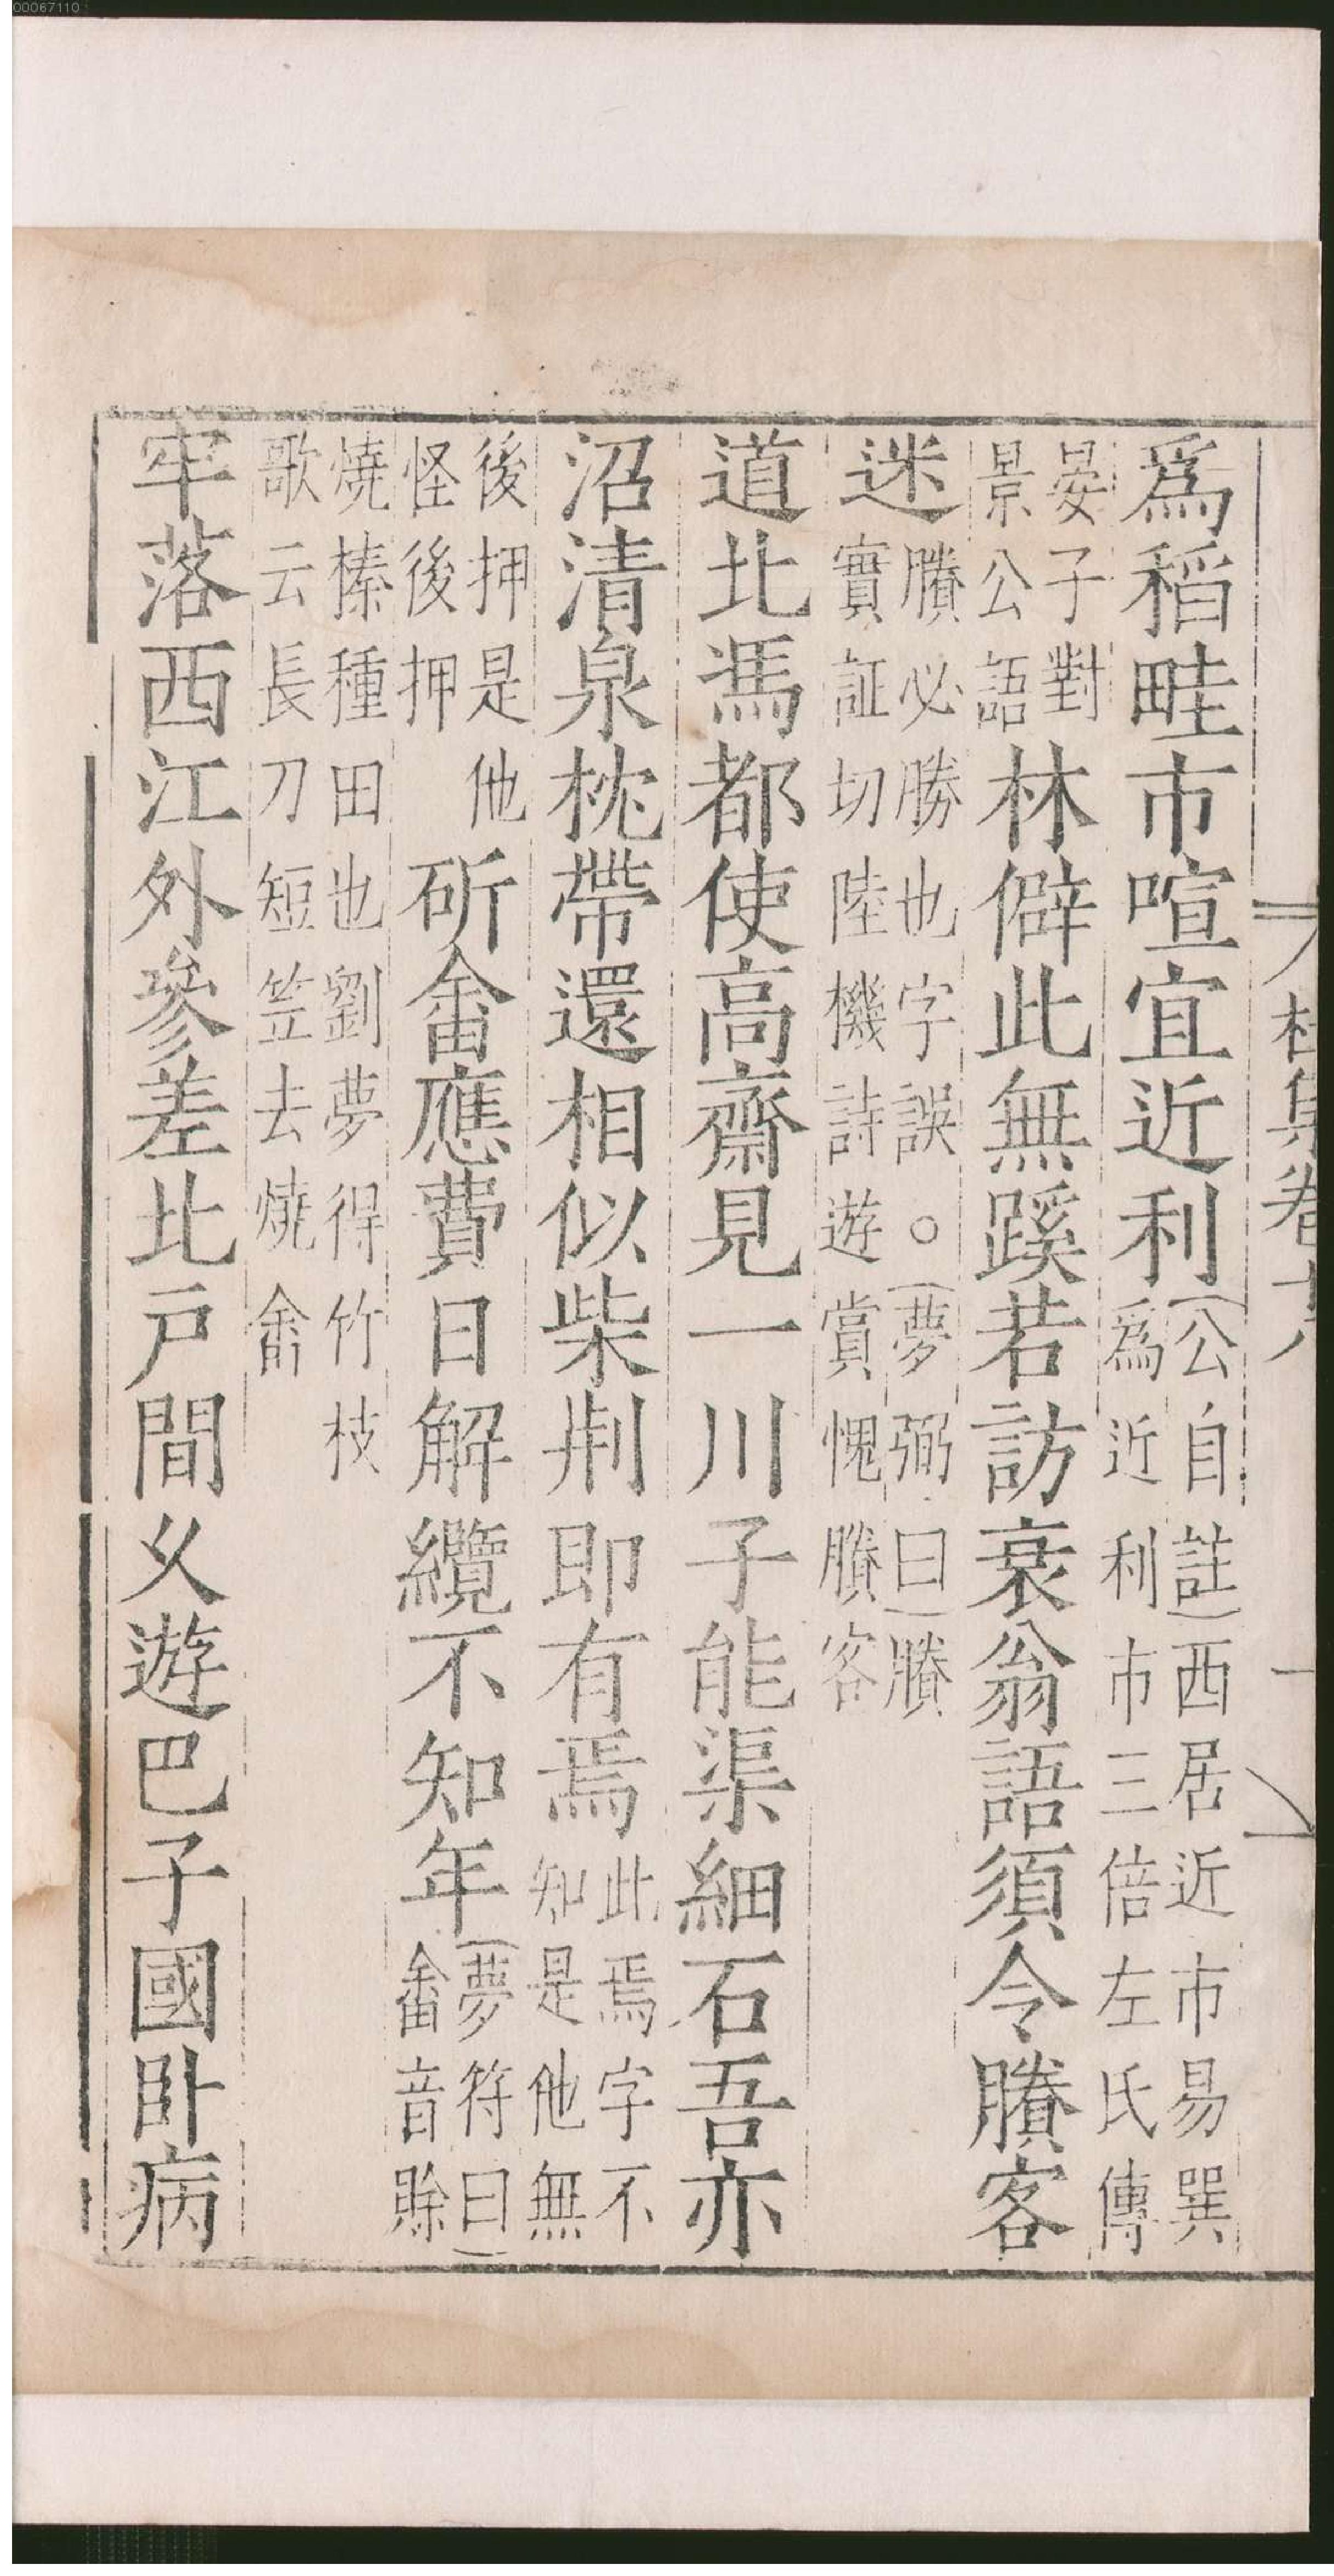 00067110
杜集卷十八
爲稻畦市喧宜近利(公自註)西居近市易巽
爲近利市三倍左氏傳
晏子對
景公語林僻此無蹊若訪衰翁語須令賸客
迷賸必勝也字誤。(夢弼曰)賸
實証切陸機詩遊賞愧賸客
道北馮都使高齋見一川子能渠細石吾亦
沼清泉枕帶還相似柴荆即有焉此焉字不
知是他無
後押是他
怪後押斫畬應費日解纜不知年(夢符曰)
畬音賖
燒榛種田也劉夢得竹枝
歌云長刀短笠去燒畬
牢落西江外參差北戶間久遊巴子國臥病